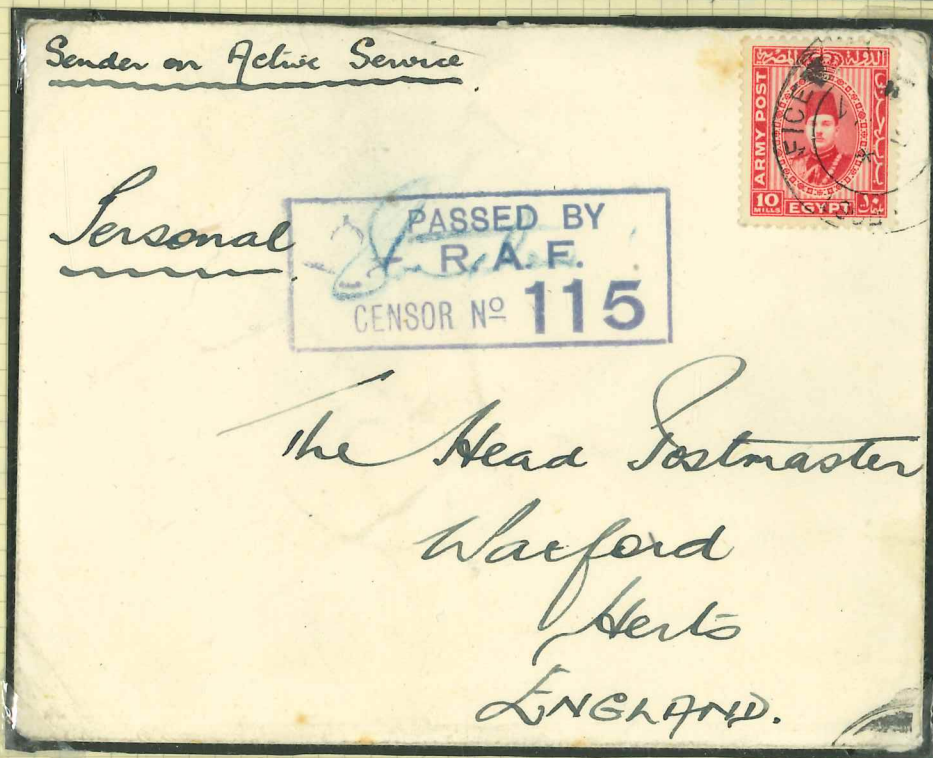 Sender on Active Service
ARMY POST
10
MILLS
EGYPT
Personal
PASSED BY
R.A.F.
CENSOR Nº 115
The Head Postmaster
Watford
Herts
ENGLAND.